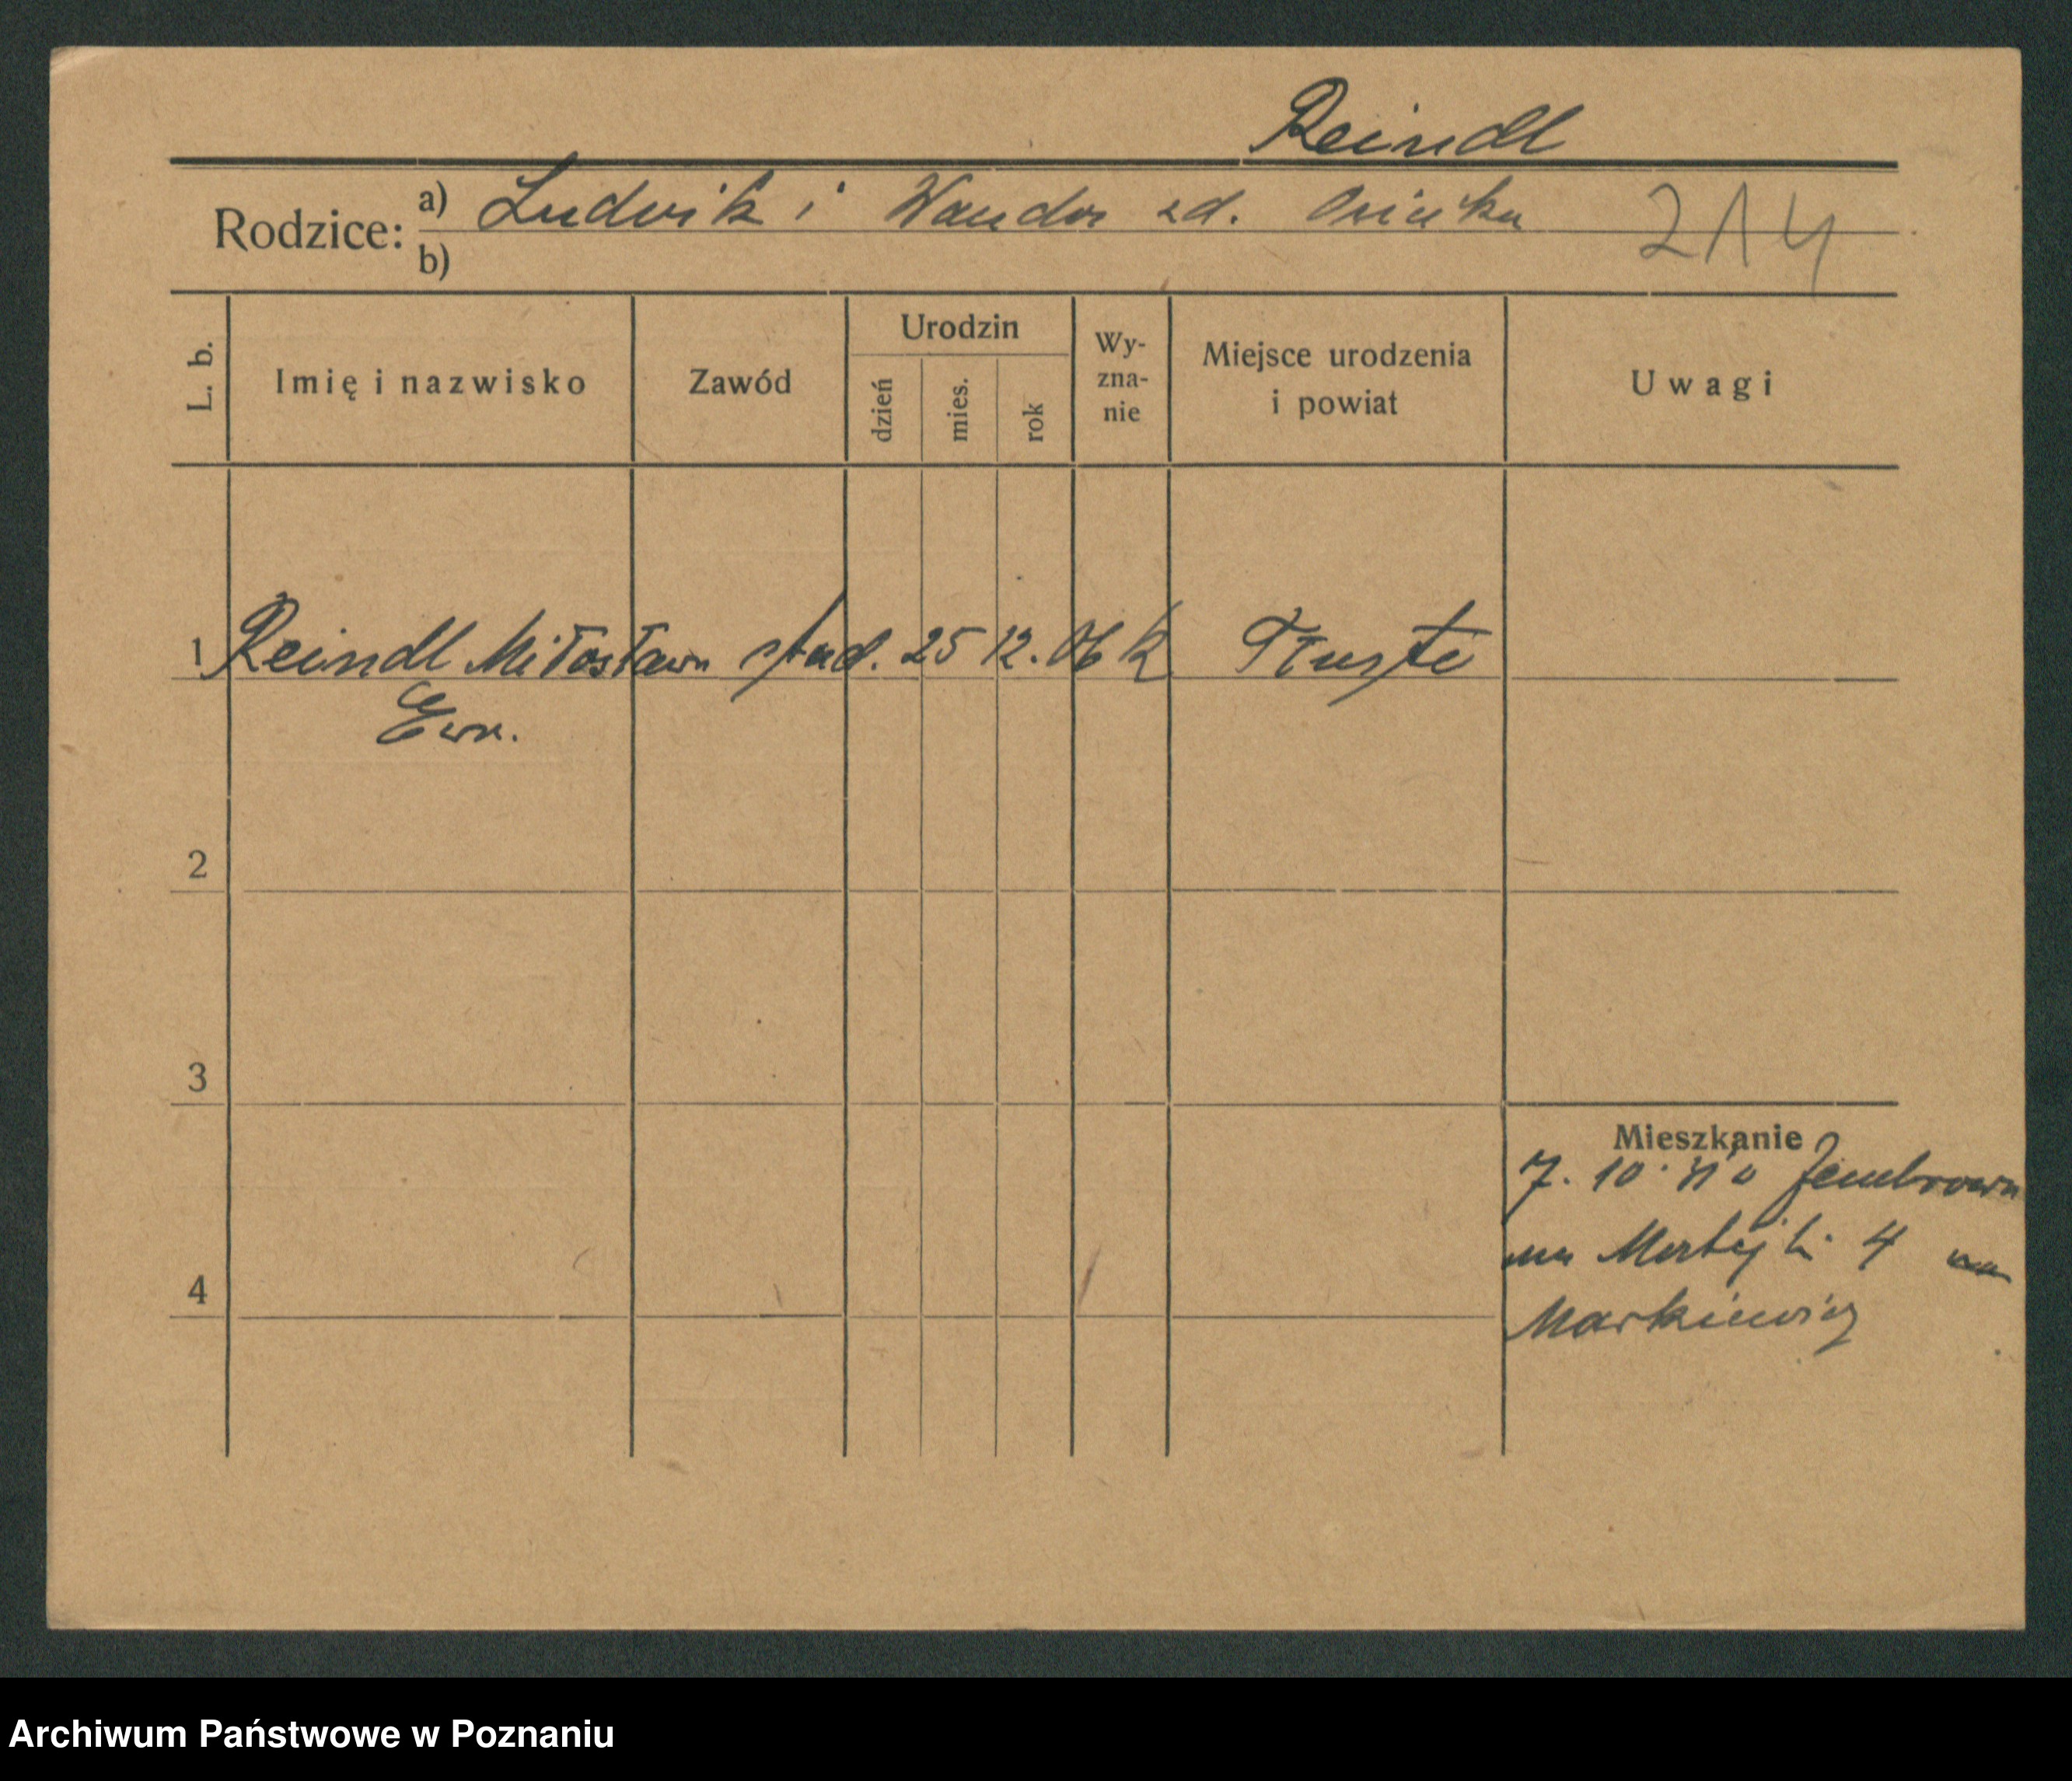 Reindl
Rodzice: a) Ludwik i Wanda zd. 214
b)
L. b. Imię i nazwisko Zawód Urodzin dzień mies. rok Wy- zna- nie Miejsce urodzenia i powiat Uwagi
1 Reindl Miłosława stud. 25 12. 06 k Tłuste
Ewa.
2
3
Mieszkanie
7. 10. z
4 4
Markiewicz
Archiwum Państwowe w Poznaniu